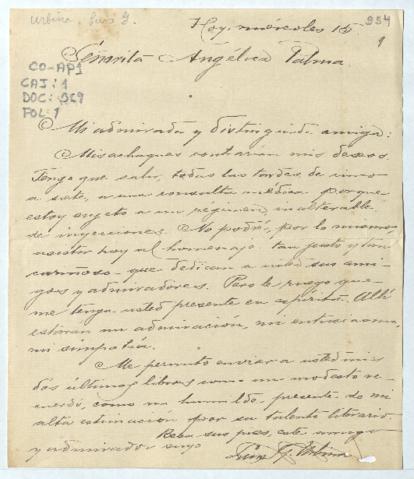 Urbina, Luis G.
Hoy, miércoles 15
954
1
Señorita Angélica Palma
CO-AP1
CAJ: 1
DOC: 969
FOL: 1
Mi admirada y distinguida amiga:
Mis achaques contrarían mis deseos.
Tengo que salir, todas las tardes de cinco
a siete, a una consulta médica porque
estoy sujeto a un régimen inalterable
de inyecciones. No podré, por lo mismo
asistir hoy al homenaje tan justo y tan
cariñoso que dedican a usted sus ami-
gos y admiradores. Pero le ruego que
me tenga usted presente en espíritu. Allí
estarán mi admiración, mi entusiasmo,
mi simpatía.
Me permito enviar a usted mis
dos últimos libros como un modesto re-
cuerdo, como un humilde presente de mi
alta estimación por su talento literario.
Besa sus pies, este amigo
y admirador suyo
Luis G. Urbina